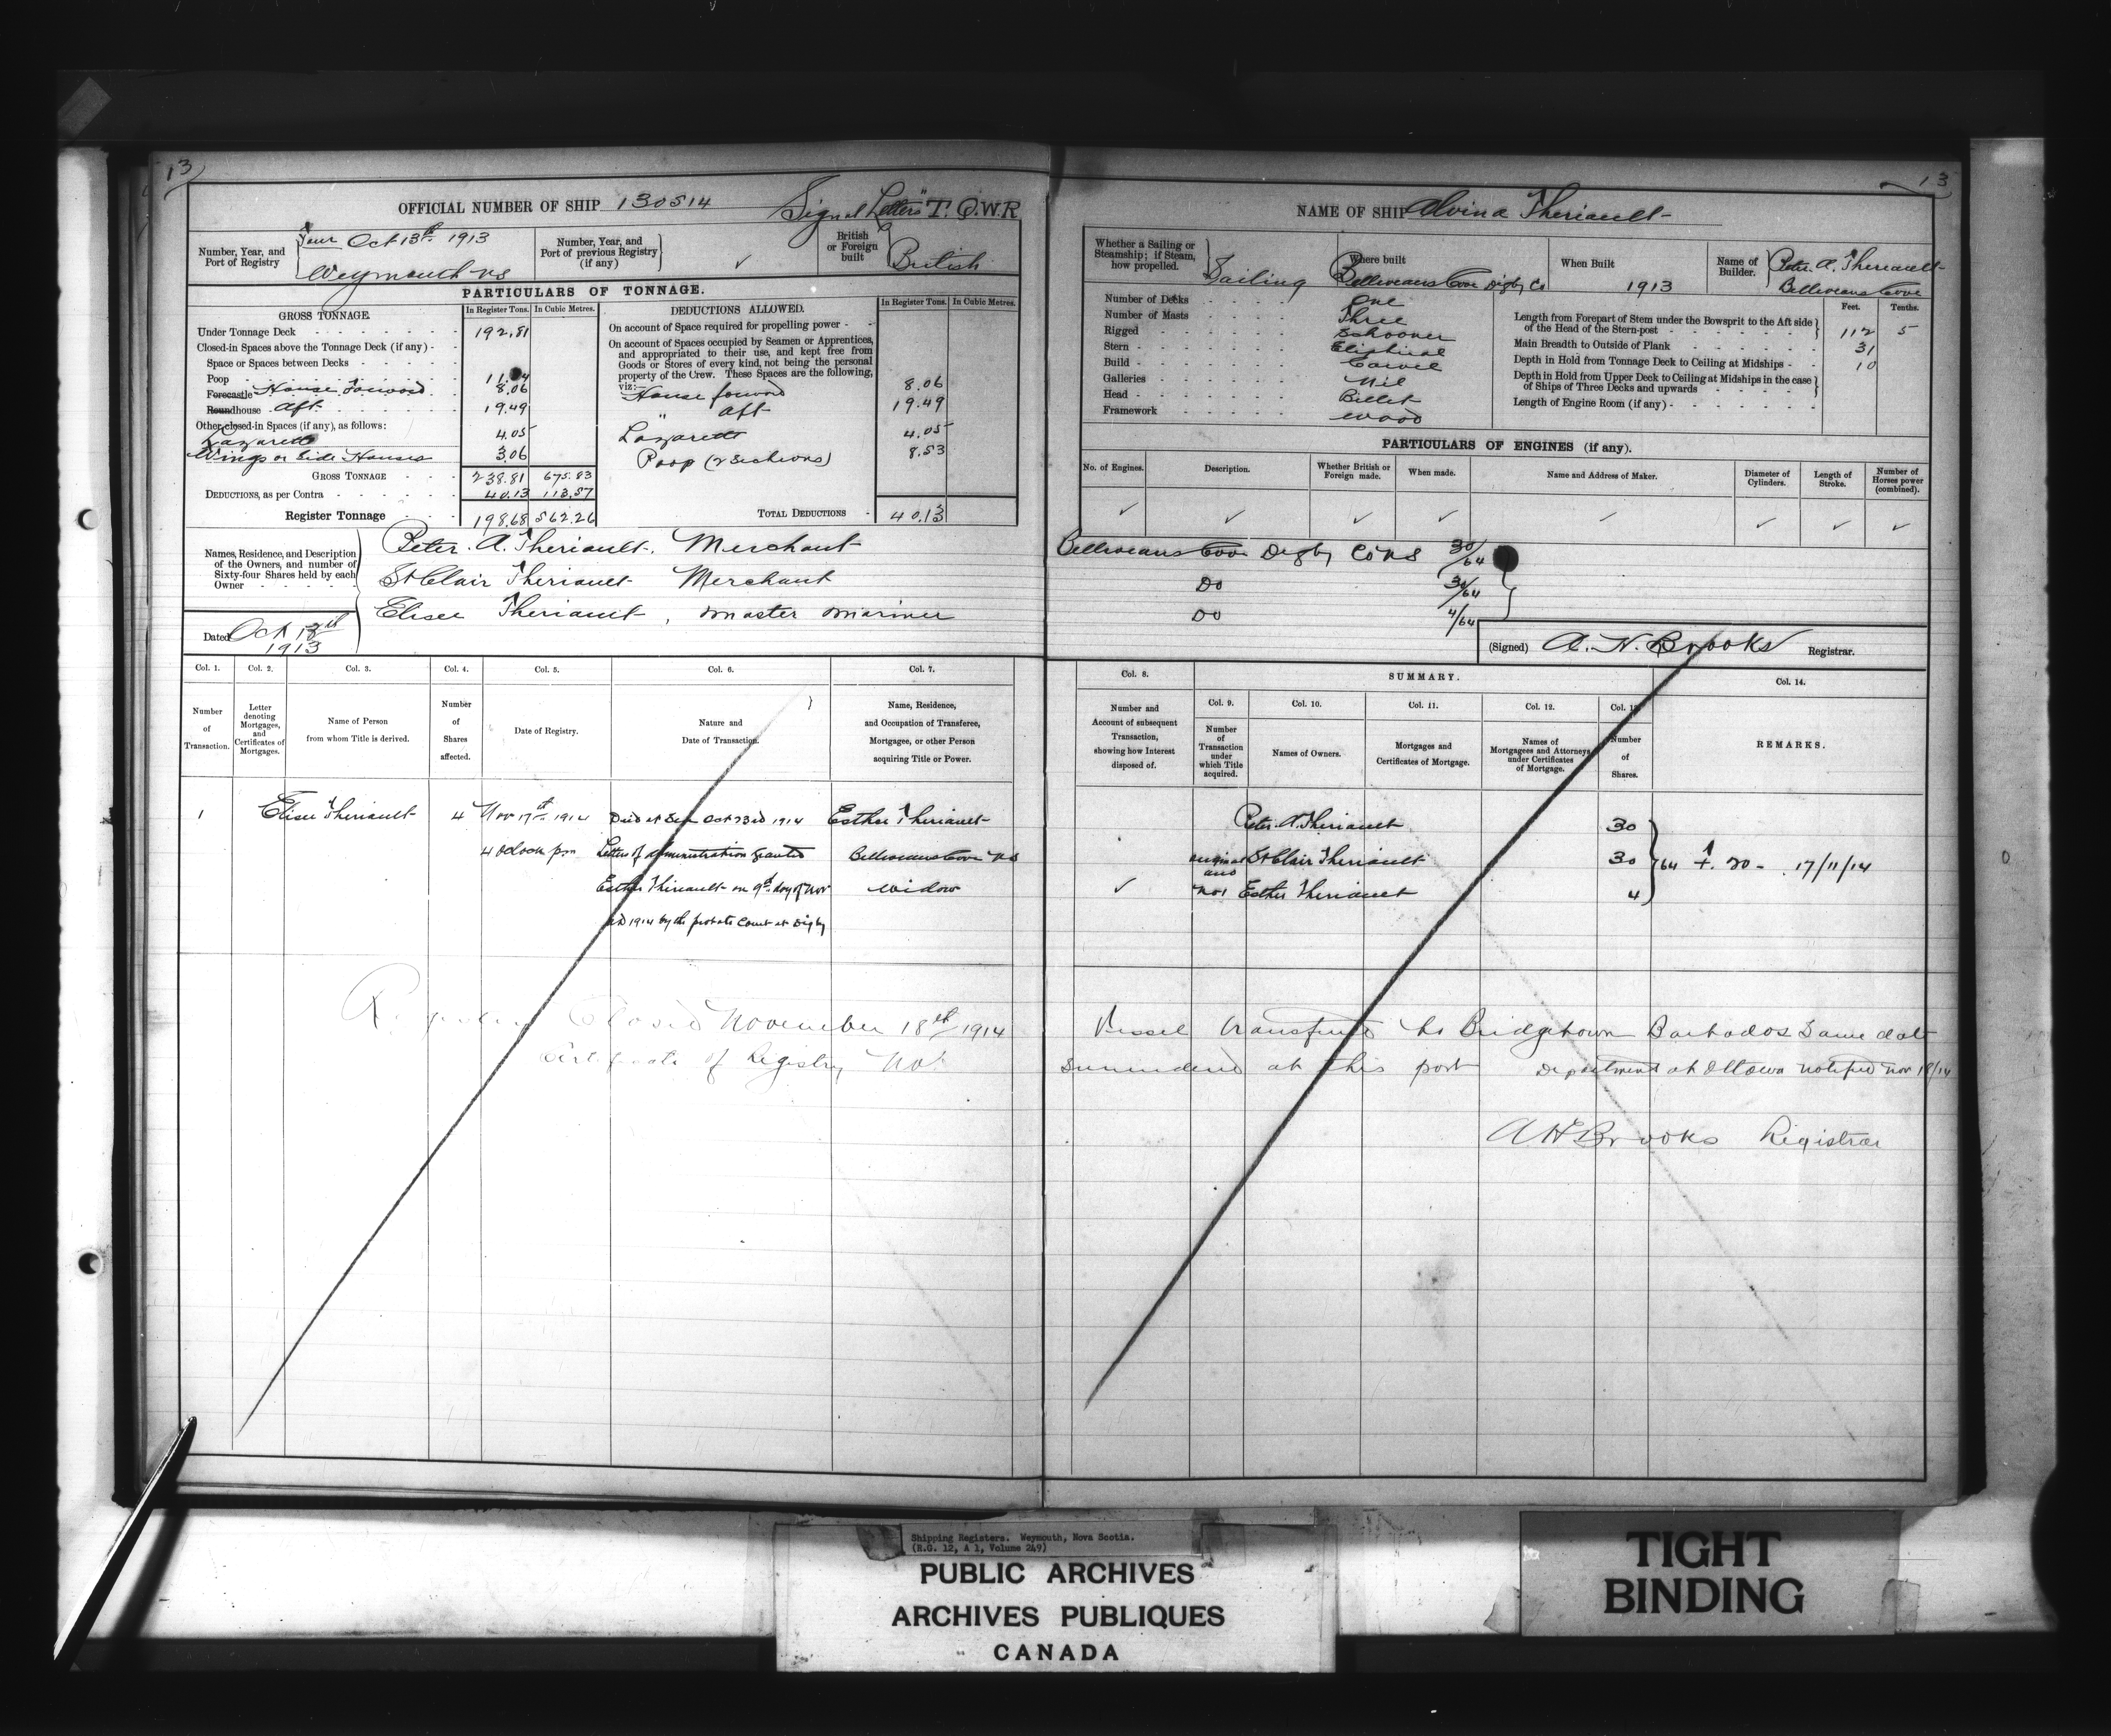 13
13
OFFICIAL NUMBER OF SHIP 130514
Signal Letters "T. Q.W.R
Number, Year, and Port of Registry
Four Oct 13th 1913
Weymouth NS
Number, Year, and Port of previous Registry (if any)
✓
British or Foreign built
British
PARTICULARS OF TONNAGE.
GROSS TONNAGE.
In Register Tons.
In Cubic Metres.
DEDUCTIONS ALLOWED.
In Register Tons.
In Cubic Metres.
Under Tonnage Deck 192.81
Closed-in Spaces above the Tonnage Deck (if any)
Space or Spaces between Decks
Poop
Forecastle House Forward 8.06
Roundhouse aft 19.49
Other closed-in Spaces (if any), as follows:
Lazarette 4.05
Wings or Side Houses 3.06
GROSS TONNAGE 238.81 675.83
DEDUCTIONS, as per Contra 40.13 113.57
Register Tonnage 198.68 562.26
On account of Space required for propelling power
On account of Spaces occupied by Seamen or Apprentices,
and appropriated to their use, and kept free from
Goods or Stores of every kind, not being the personal
property of the Crew. These Spaces are the following,
viz:—
House forward 8.06
" aft 19.49
Lazarette 4.05
Poop (2 Sections) 8.53
TOTAL DEDUCTIONS 40.13
Names, Residence, and Description
of the Owners, and number of
Sixty-four Shares held by each
Owner
Peter. A. Theriault. Merchant
St Clair Theriault Merchant
Elisee Theriault, Master Mariner
Dated Oct 13th
1913
NAME OF SHIP Alvina Theriault
Whether a Sailing or Steamship; if Steam, how propelled.
Sailing
Where built
Belliveaus Cove Digby Co
When Built
1913
Name of Builder.
Peter. A. Theriault
Belliveaus Cove
Number of Decks One
Number of Masts Three
Rigged Schooner
Stern Eliptical
Build Carvel
Galleries Nil
Head Billet
Framework Wood
Feet.
Tenths.
Length from Forepart of Stem under the Bowsprit to the Aft side
of the Head of the Stern-post 112 5
Main Breadth to Outside of Plank 31
Depth in Hold from Tonnage Deck to Ceiling at Midships 10
Depth in Hold from Upper Deck to Ceiling at Midships in the case
of Ships of Three Decks and upwards
Length of Engine Room (if any)
PARTICULARS OF ENGINES (if any).
No. of Engines.
Description.
Whether British or Foreign made.
When made.
Name and Address of Maker.
Diameter of Cylinders.
Length of Stroke.
Number of Horses power (combined).
✓ ✓ ✓ ✓ ✓ ✓ ✓ ✓
Belliveaus Cove Digby Co NS 30/64
Do 30/64
Do 4/64
(Signed) A. N. Brooks Registrar.
Col. 1.
Col. 2.
Col. 3.
Col. 4.
Col. 5.
Col. 6.
Col. 7.
Number of Transaction.
Letter denoting Mortgages, and Certificates of Mortgages.
Name of Person from whom Title is derived.
Number of Shares affected.
Date of Registry.
Nature and Date of Transaction.
Name, Residence, and Occupation of Transferee, Mortgagee, or other Person acquiring Title or Power.
1 Elisee Theriault 4 Nov 17th 1914 Died at Sea Oct 23rd 1914 Esther Theriault
4 Oclock pm Letters of administration granted Belliveaus Cove NS
Esther Theriault on 9th day of Nov Widow
AD 1914 by the probate Court at Digby
Register Closed November 18th 1914
Certificate of Registry
Col. 8.
SUMMARY.
Col. 14.
Number and Account of subsequent Transaction, showing how Interest disposed of.
Col. 9.
Col. 10.
Col. 11.
Col. 12.
Number of Transaction under which Title acquired.
Names of Owners.
Mortgages and Certificates of Mortgage.
Names of Mortgagees and Attorneys under Certificates of Mortgage.
Number of Shares.
REMARKS.
Peter. A. Theriault 30
original St Clair Theriault 30
and
✓ No 1 Esther Theriault 4
64
17/11/14
Vessel transferred to Bridgetown Barbados Same date
Surrendered at this port Department at Ottawa notified Nov 18/14
A N Brooks Registrar
Shipping Registers. Weymouth, Nova Scotia.
(R.G. 12, A 1, Volume 249)
PUBLIC ARCHIVES
ARCHIVES PUBLIQUES
CANADA
TIGHT
BINDING